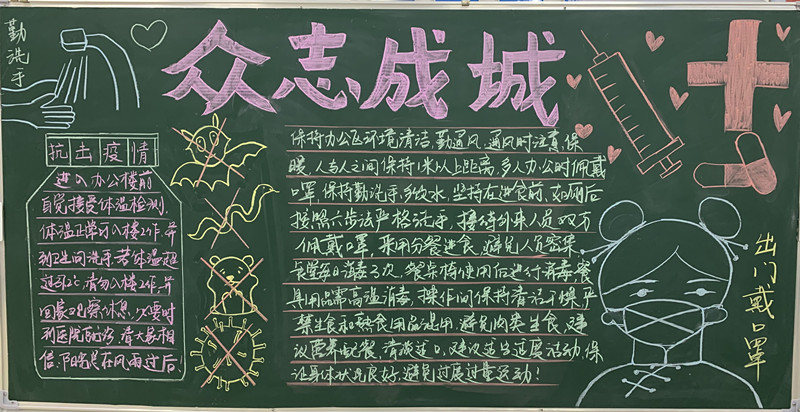 勤洗手
众志成城
抗击疫情
进入办公楼前
自觉接受体温检测,
体温正常可入楼工作,并
到卫生间洗手,若体温超
过37.2℃,请勿入楼工作,并
回家观察休息,必要时
到医院就诊,请大家相
信,阳光总在风雨过后.
保持办公区环境清洁,勤通风,通风时注意保
暖,人与人之间保持1米以上距离,多人办公时佩戴
口罩,保持勤洗手,多饮水,坚持在进食前,如厕后
按照六步法严格洗手,接待外来人员双方
佩戴口罩,采用分餐进食,避免人员密集,
食堂每日消毒3次,餐桌椅使用后进行消毒,餐
具用品需高温消毒,操作间保持清洁干燥,严
禁生食和熟食用品混用,避免肉类生食,建
议营养配餐,清淡适口,建议适当适度活动,保
证身体状况良好,避免过度过量运动!
出门戴口罩